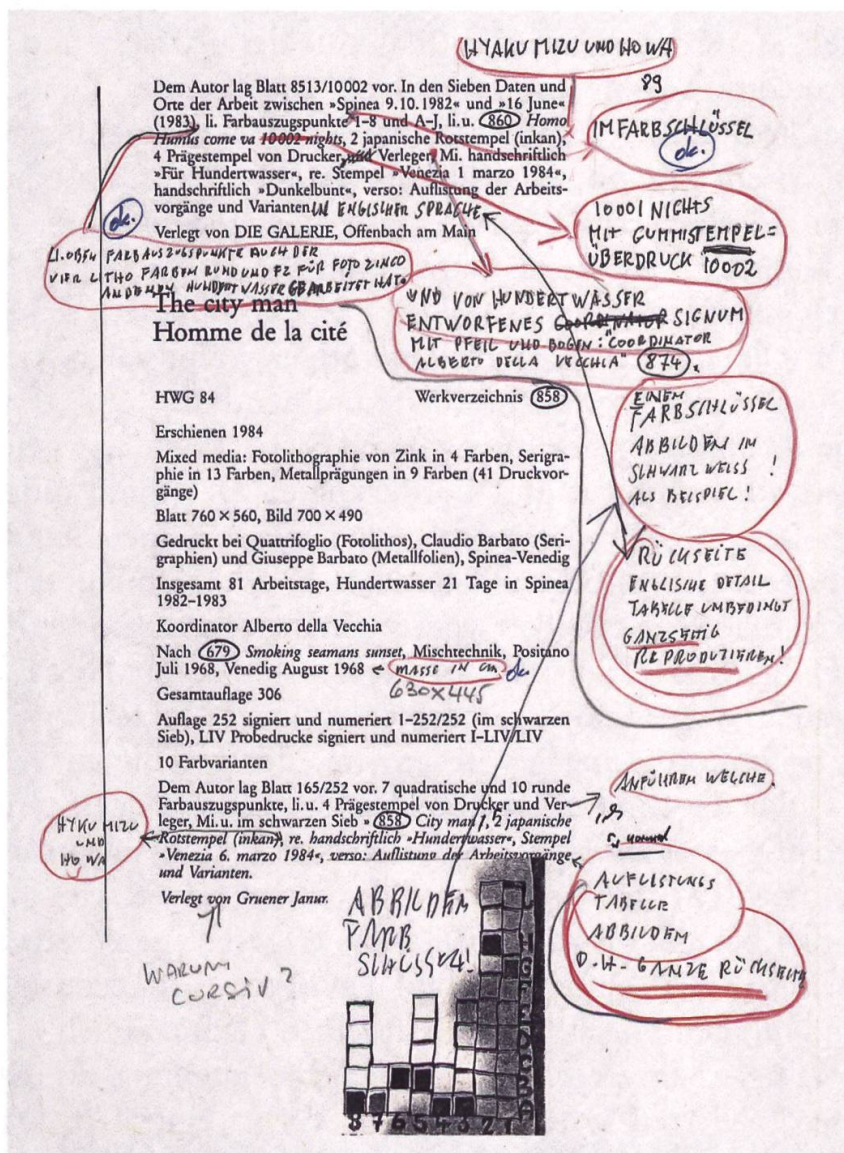 HYAKU MIZU UND HO WA
89
Dem Autor lag Blatt 8513/10002 vor. In den Sieben Daten und
Orte der Arbeit zwischen »Spinea 9.10.1982« und »16 June«
(1983), li. Farbauszugspunkte 1–8 und A–J, li. u. 860 Homo
Humus come va 10002 nights, 2 japanische Rotstempel (inkan),
4 Prägestempel von Drucker und Verleger, Mi. handschriftlich
»Für Hundertwasser«, re. Stempel »Venezia 1 marzo 1984«,
handschriftlich »Dunkelbunt«, verso: Auflistung der Arbeits-
vorgänge und Varianten IN ENGLISCHER SPRACHE
Verlegt von DIE GALERIE, Offenbach am Main
IM FARBSCHLÜSSEL
ok.
10001 NICHTS
MIT GUMMISTEMPEL=
ÜBERDRUCK 10002
ok.
LI. OBEN FARBAUSZUGSPUNKTE AUCH DER
VIER LITHO FARBEN RUND UND FZ FÜR FOTO ZINCO
AN DENEN HUNDERTWASSER GEARBEITET HAT.
UND VON HUNDERTWASSER
ENTWORFENES COORDINATOR SIGNUM
MIT PFEIL UND BOGEN: "COORDINATOR
ALBERTO DELLA VECCHIA" 874.
The city man
Homme de la cité
HWG 84 Werkverzeichnis 858
Erschienen 1984
Mixed media: Fotolithographie von Zink in 4 Farben, Serigra-
phie in 13 Farben, Metallprägungen in 9 Farben (41 Druckvor-
gänge)
Blatt 760 × 560, Bild 700 × 490
Gedruckt bei Quattrifoglio (Fotolithos), Claudio Barbato (Seri-
graphien) und Giuseppe Barbato (Metallfolien), Spinea-Venedig
Insgesamt 81 Arbeitstage, Hundertwasser 21 Tage in Spinea
1982–1983
Koordinator Alberto della Vecchia
Nach 679 Smoking seamans sunset, Mischtechnik, Positano
Juli 1968, Venedig August 1968 MASSE IN CM. ok.
630×445
Gesamtauflage 306
Auflage 252 signiert und numeriert 1–252/252 (im schwarzen
Sieb), LIV Probedrucke signiert und numeriert I–LIV/LIV
10 Farbvarianten
Dem Autor lag Blatt 165/252 vor. 7 quadratische und 10 runde
Farbauszugspunkte, li. u. 4 Prägestempel von Drucker und Ver-
leger, Mi. u. im schwarzen Sieb » 858 City man 1, 2 japanische
Rotstempel (inkan), re. handschriftlich »Hundertwasser«, Stempel
»Venezia 6. marzo 1984«, verso: Auflistung der Arbeitsvorgänge
und Varianten.
Verlegt von Gruener Janur.
EINEM
FARBSCHLÜSSEL
ABBILDEN IM
SCHWARZ WEISS !
ALS BEISPIEL!
RÜCKSEITE
ENGLISCHE DETAIL
TABELLE UMBEDINGT
GANZSEITIG
REPRODUZIEREN!
ANFÜHREN WELCHE.
HYKU MIZU
UND
HO WA
normal
AUFLISTUNGS
TABELLE
ABBILDEN
D.H. GANZE RÜCKSEITE
WARUM
CURSIV?
ABBILDEN
FARB
SCHLÜSSEL!
8 7 6 5 4 3 2 1